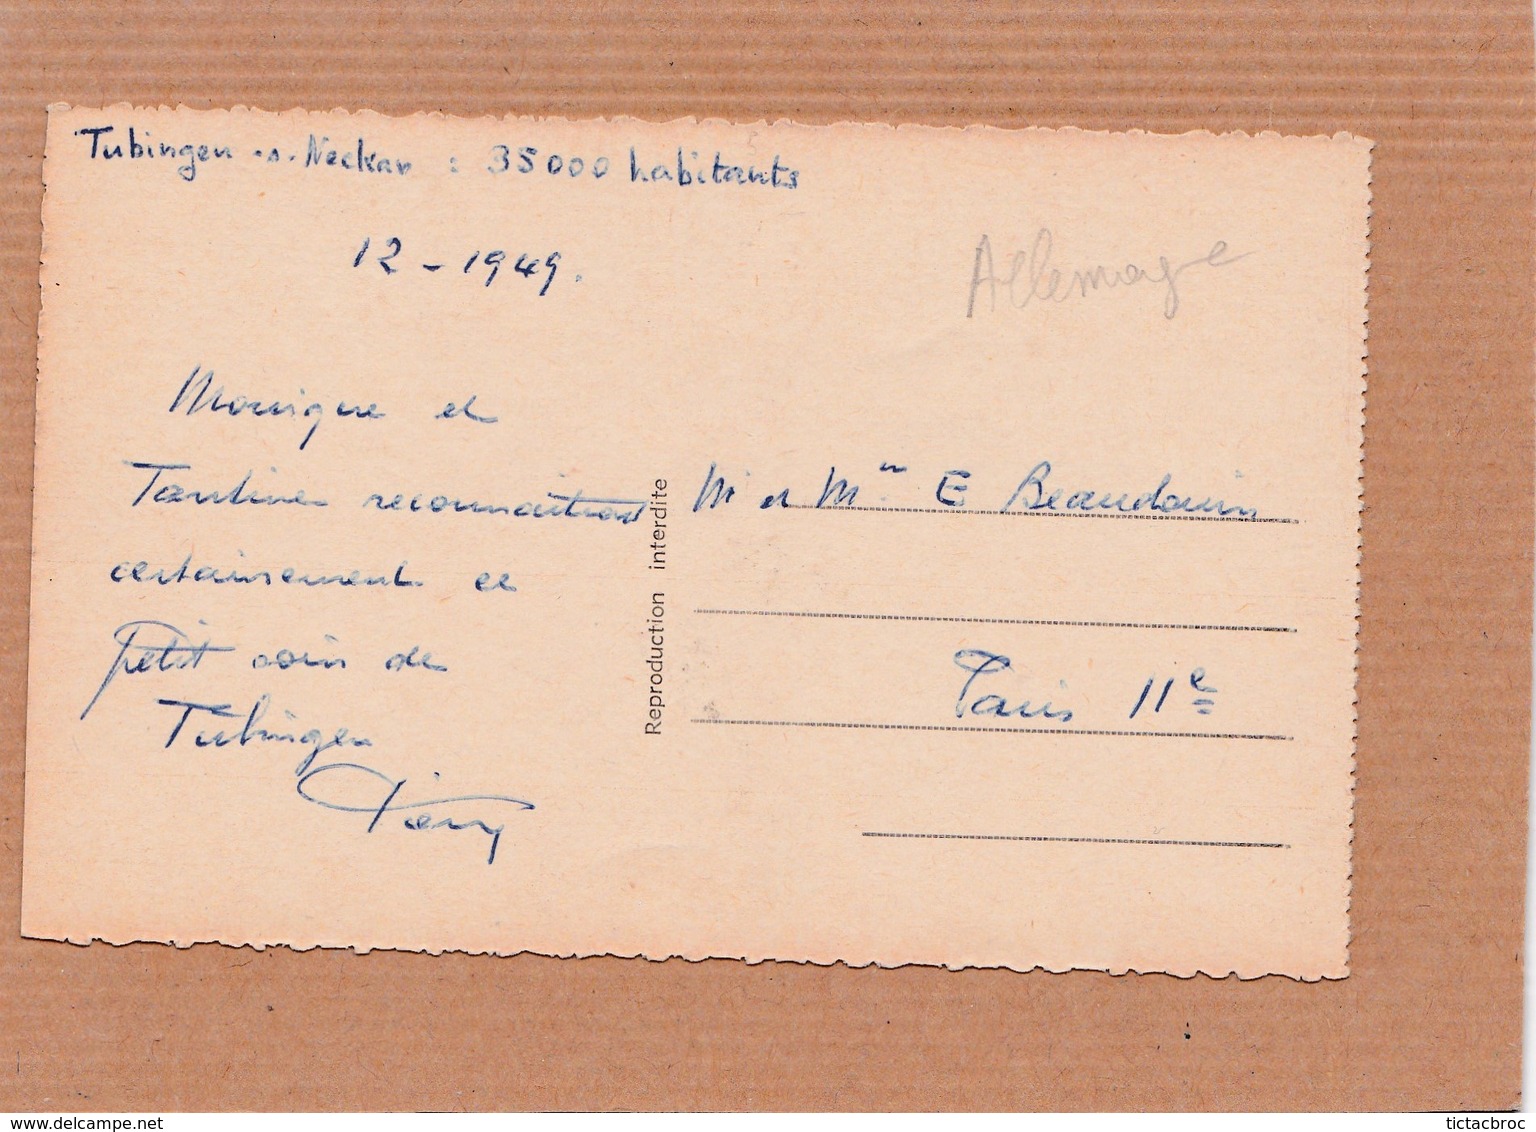 Tubingen -s- Neckar : 35000 habitants
12 - 1949.
Allemagne
Monique et
Tantine reconnaitront
certainement ce
petit coin de
Tubingen
Pierry
M et Mme E Beaudouin
Paris 11e
Reproduction interdite
delcampe.net
tictacbroc